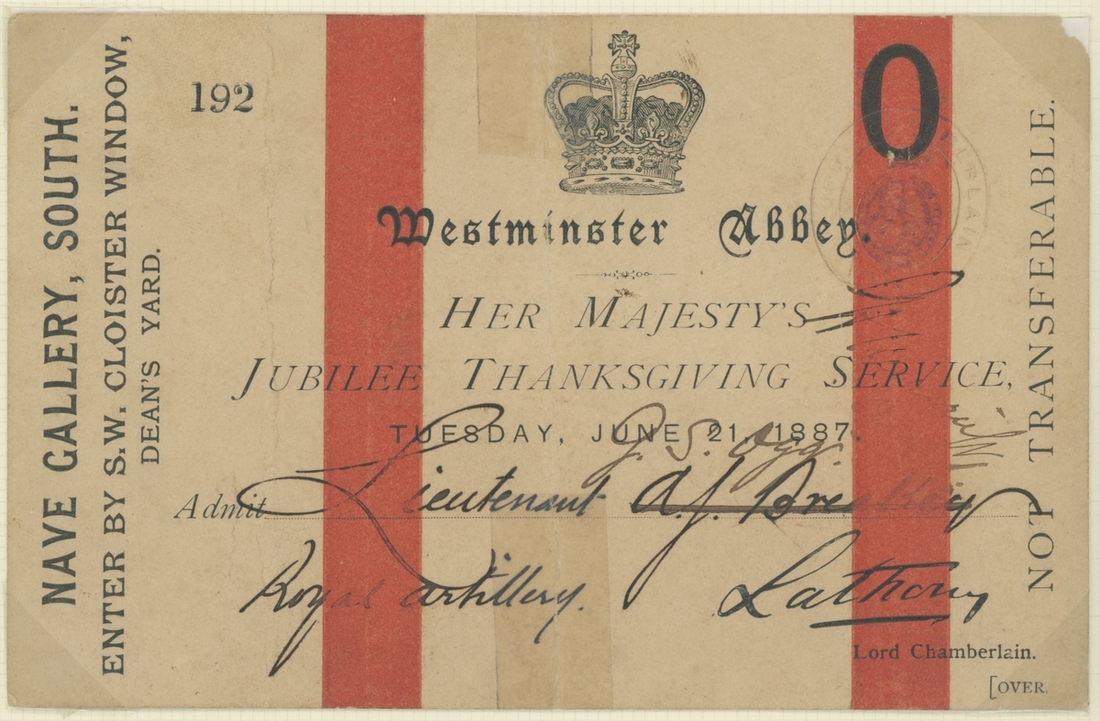 NAVE GALLERY, SOUTH.
ENTER BY S.W. CLOISTER WINDOW,
DEAN'S YARD.
192
O
Westminster Abbey.
HER MAJESTY'S
JUBILEE THANKSGIVING SERVICE,
TUESDAY, JUNE 21, 1887.
G. S. Ogg.
Admit Lieutenant A. J.
Royal Artillery.
Lathom
Lord Chamberlain.
[OVER.
NOT TRANSFERABLE.